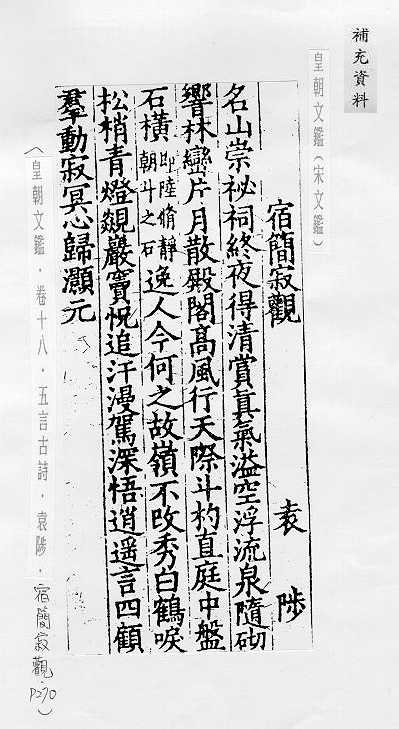 補充資料
皇朝文鑑(宋文鑑)
宿簡寂觀
袁陟
名山崇祕祠終夜得清賞真氣溢空浮流泉隨砌
響林巒片月散殿閣高風行天際斗杓直庭中盤
石橫即陸脩靜朝斗之石逸人今何之故嶺不改秀白鶴唳
松梢青燈覷巖竇怳追汗漫駕深悟逍遥言四顧
羣動寂冥心歸灝元
(皇朝文鑑·卷十八·五言古詩·袁陟·宿簡寂觀·P270)